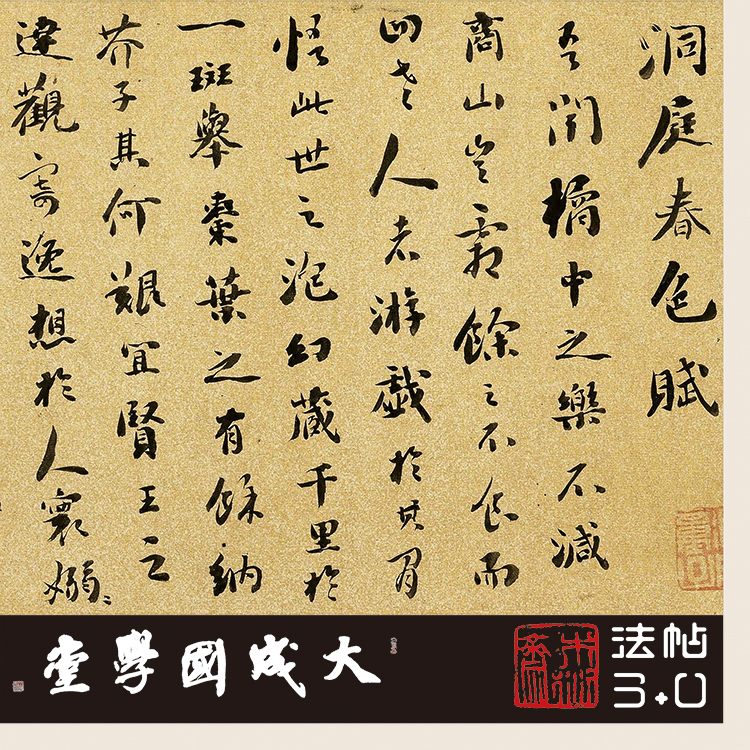 洞庭春色賦
吾聞橘中之樂不減
商山豈霜餘之不食而
四老人者游戲於其間
悟此世之泡幻藏千里於
一斑舉棗葉之有餘納
芥子其何艱宜賢王之
達觀寄逸想於人寰嫋〻
大成國學堂
法帖
3.0